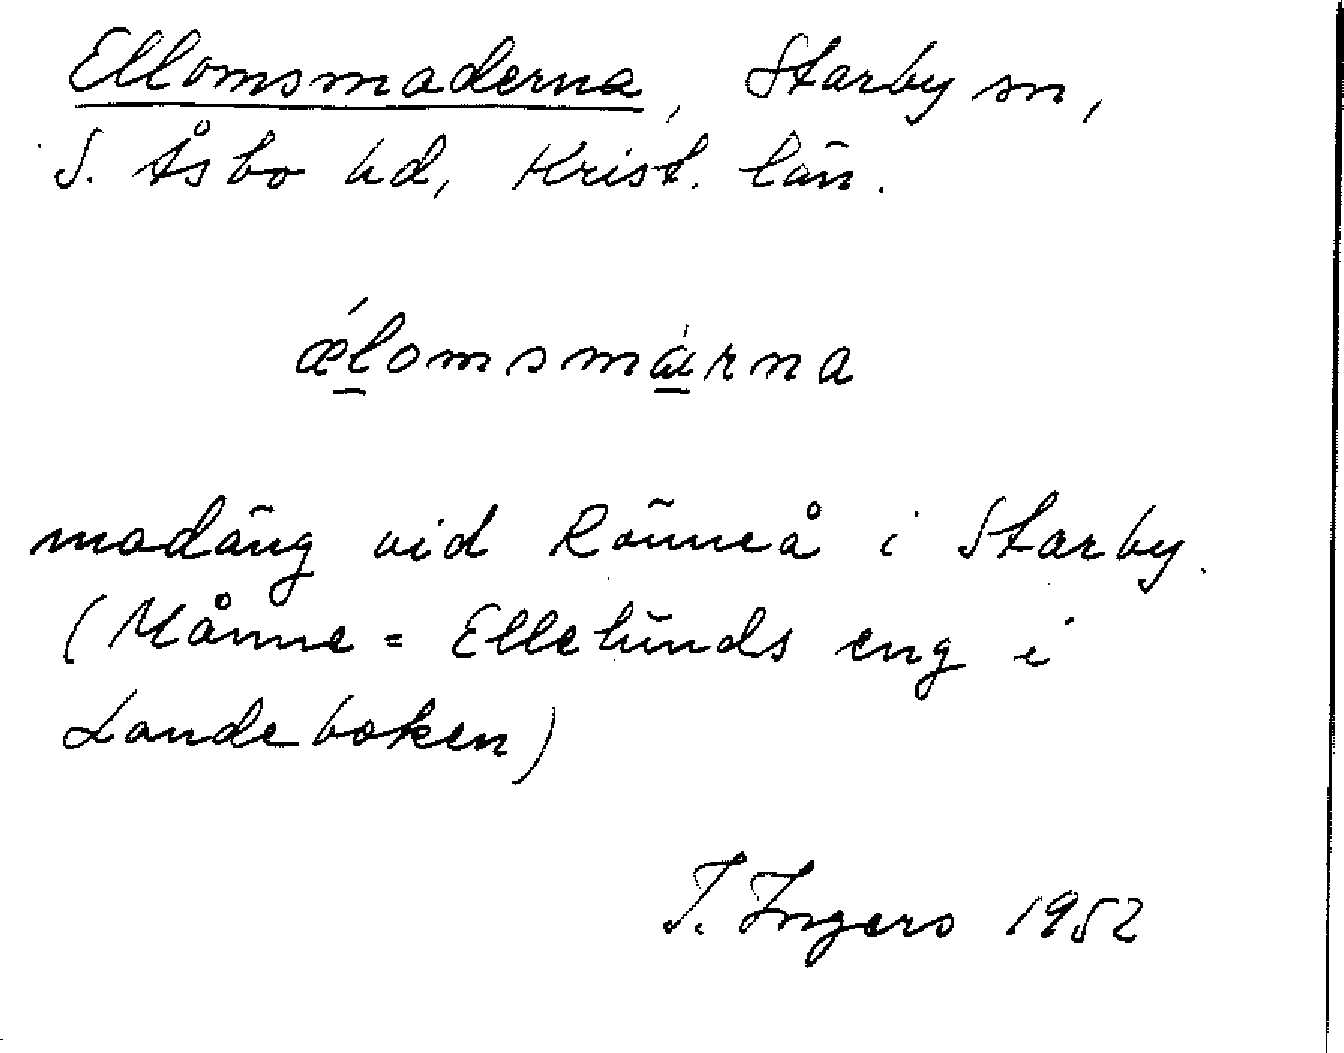 Ellomsmaderna, Starby sn,
S. Åsbo hd, Krist. län.
ǽl̠omsmá̠rna
madäng vid Rönneå i Starby.
(Månne = Ellelunds eng i
Landeboken)
I. Ingers 1952